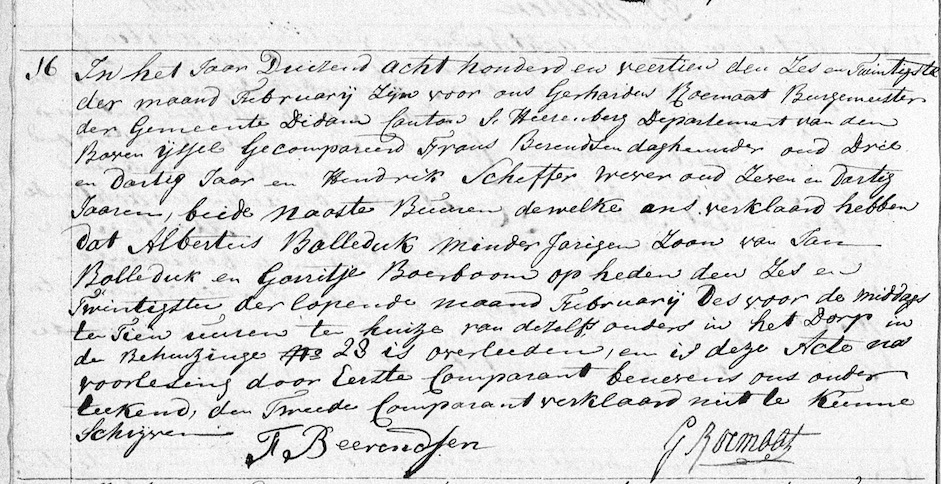 16 In het Jaar Duizend acht honderd en veertien den Zes en Twintigste
der maand February Zijn voor ons Gerhardus Roemaat Burgemeester
der Gemeente Didam Canton S Heerenberg Departement van den
Boven yssel Gecompareerd Frans Berendsen daghuurder oud Drie
en Dartig Jaar en Hendrik Scheffer wever oud Zeven en Dartig
Jaaren, beide naaste Buuren dewelke ons verklaard hebben
dat Albertus Balleduk minder Jarigen Zoon van Jan
Bolleduk en Gerritje Boerboom op heden den Zes en
Twintigsten der lopende maand February Des voor de middags
te Tien uuren ten huize van dezelfs ouders in het Dorp in
de Behuizinge No 23 is overleeden, en is deze Acte na
voorlezing door Eerste Comparant benevens ons onder
teekend, den Tweede Comparant verklaard niet te kunne
Schijven
F. Beerendsen G Roemaat